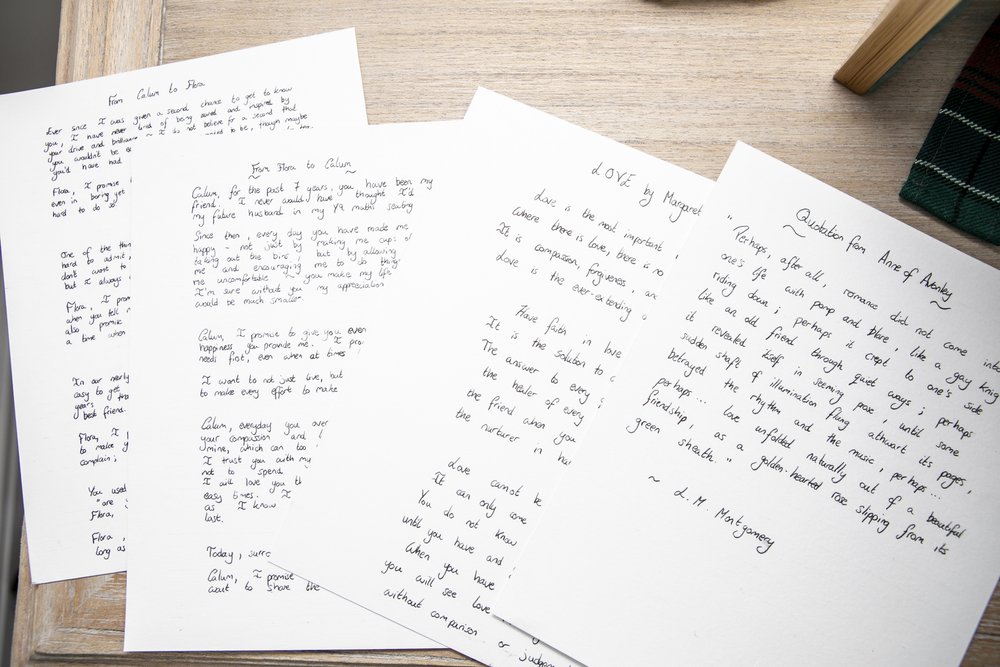 From Calum to Flora
Ever since I was given a second chance to get to know
you, I have never tired of being awed and inspired by
your drive and brilliance I do not believe for a second that
you wouldn't be to be, though maybe
you'd have had
Flora, I promise
even in boring yet
hard to do so
One of the thin
hard to admit,
don't want to
but I always
Flora, I pro
when you tell m
also promise
a time when
In our nearly
easy to get
years of tha
best friend.
Flora, I
to make y
complain;
You used
"are
Flora,
Flora,
long as
~ From Flora to Calum ~
Calum, for the past 7 years, you have been my
friend. I never would have thought I'd
my future husband in my Y9 maths seating
Since then, every day you have made me
happy - not just by making me cups of
taking out the bins, but by allowing
me and encouraging me to do thing
me uncomfortable. you make my life
I'm sure without you my appreciation
would be much smaller
Calum, I promise to give you even
happiness you provide me. I pro
needs first, even when at times
I want to not just live, but
to make every effort to make
Calum, everyday you over
your compassion and
mine, which can too
I trust you with my
not to spend
I will love you th
easy times. I
as I know
last.
Today, surro
Calum, I promise
want to share the
LOVE by Margaret
Love is the most important
Where there is love, there is no
It is compassion, forgiveness, an
Love is the ever-extending
Have faith in love
It is the solution to
The answer to every
the healer of every
the friend when you
the nurturer in ha
Love cannot be
It can only come
You do not know
until you have and
When you have
you will see love
without comparison or judgem
~ Quotation from Anne of Avonley ~
" Perhaps, after all, romance did not come into
one's life with pomp and blare, like a gay knig
riding down; perhaps it crept to one's side
like an old friend through quiet ways; perhaps
it revealed itself in seeming prose, until some
sudden shaft of illumination flung athwart its pages,
betrayed the rhythm and the music, perhaps...
perhaps... love unfolded naturally out of a beautiful
friendship, as a golden-hearted rose slipping from its
green sheath. "
~ L. M. Montgomery